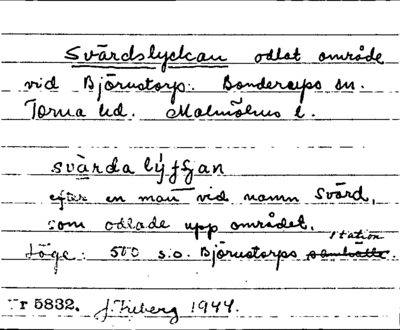 Svärdslyckan odlat område
vid Björnstorp. Bonderups sn.
Torna hd. Malmöhus l.
svàrda lýfsan
efter en man vid namn Svärd,
som odlade upp området.
Läge: 500 s.o. Björnstorps station
samhälle.
Nr 5832. 1944.